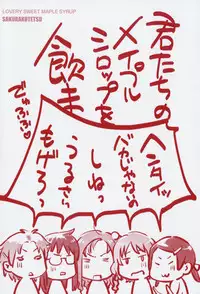 LOVERY SWEET MAPLE SYRUP
SAKURAKOTETSU
君たちの
メイプル
シロップを
飲ま
でゅふふ♡
ヘンタイッ
バカじゃないの
しねっ
うるさい
もげろっ